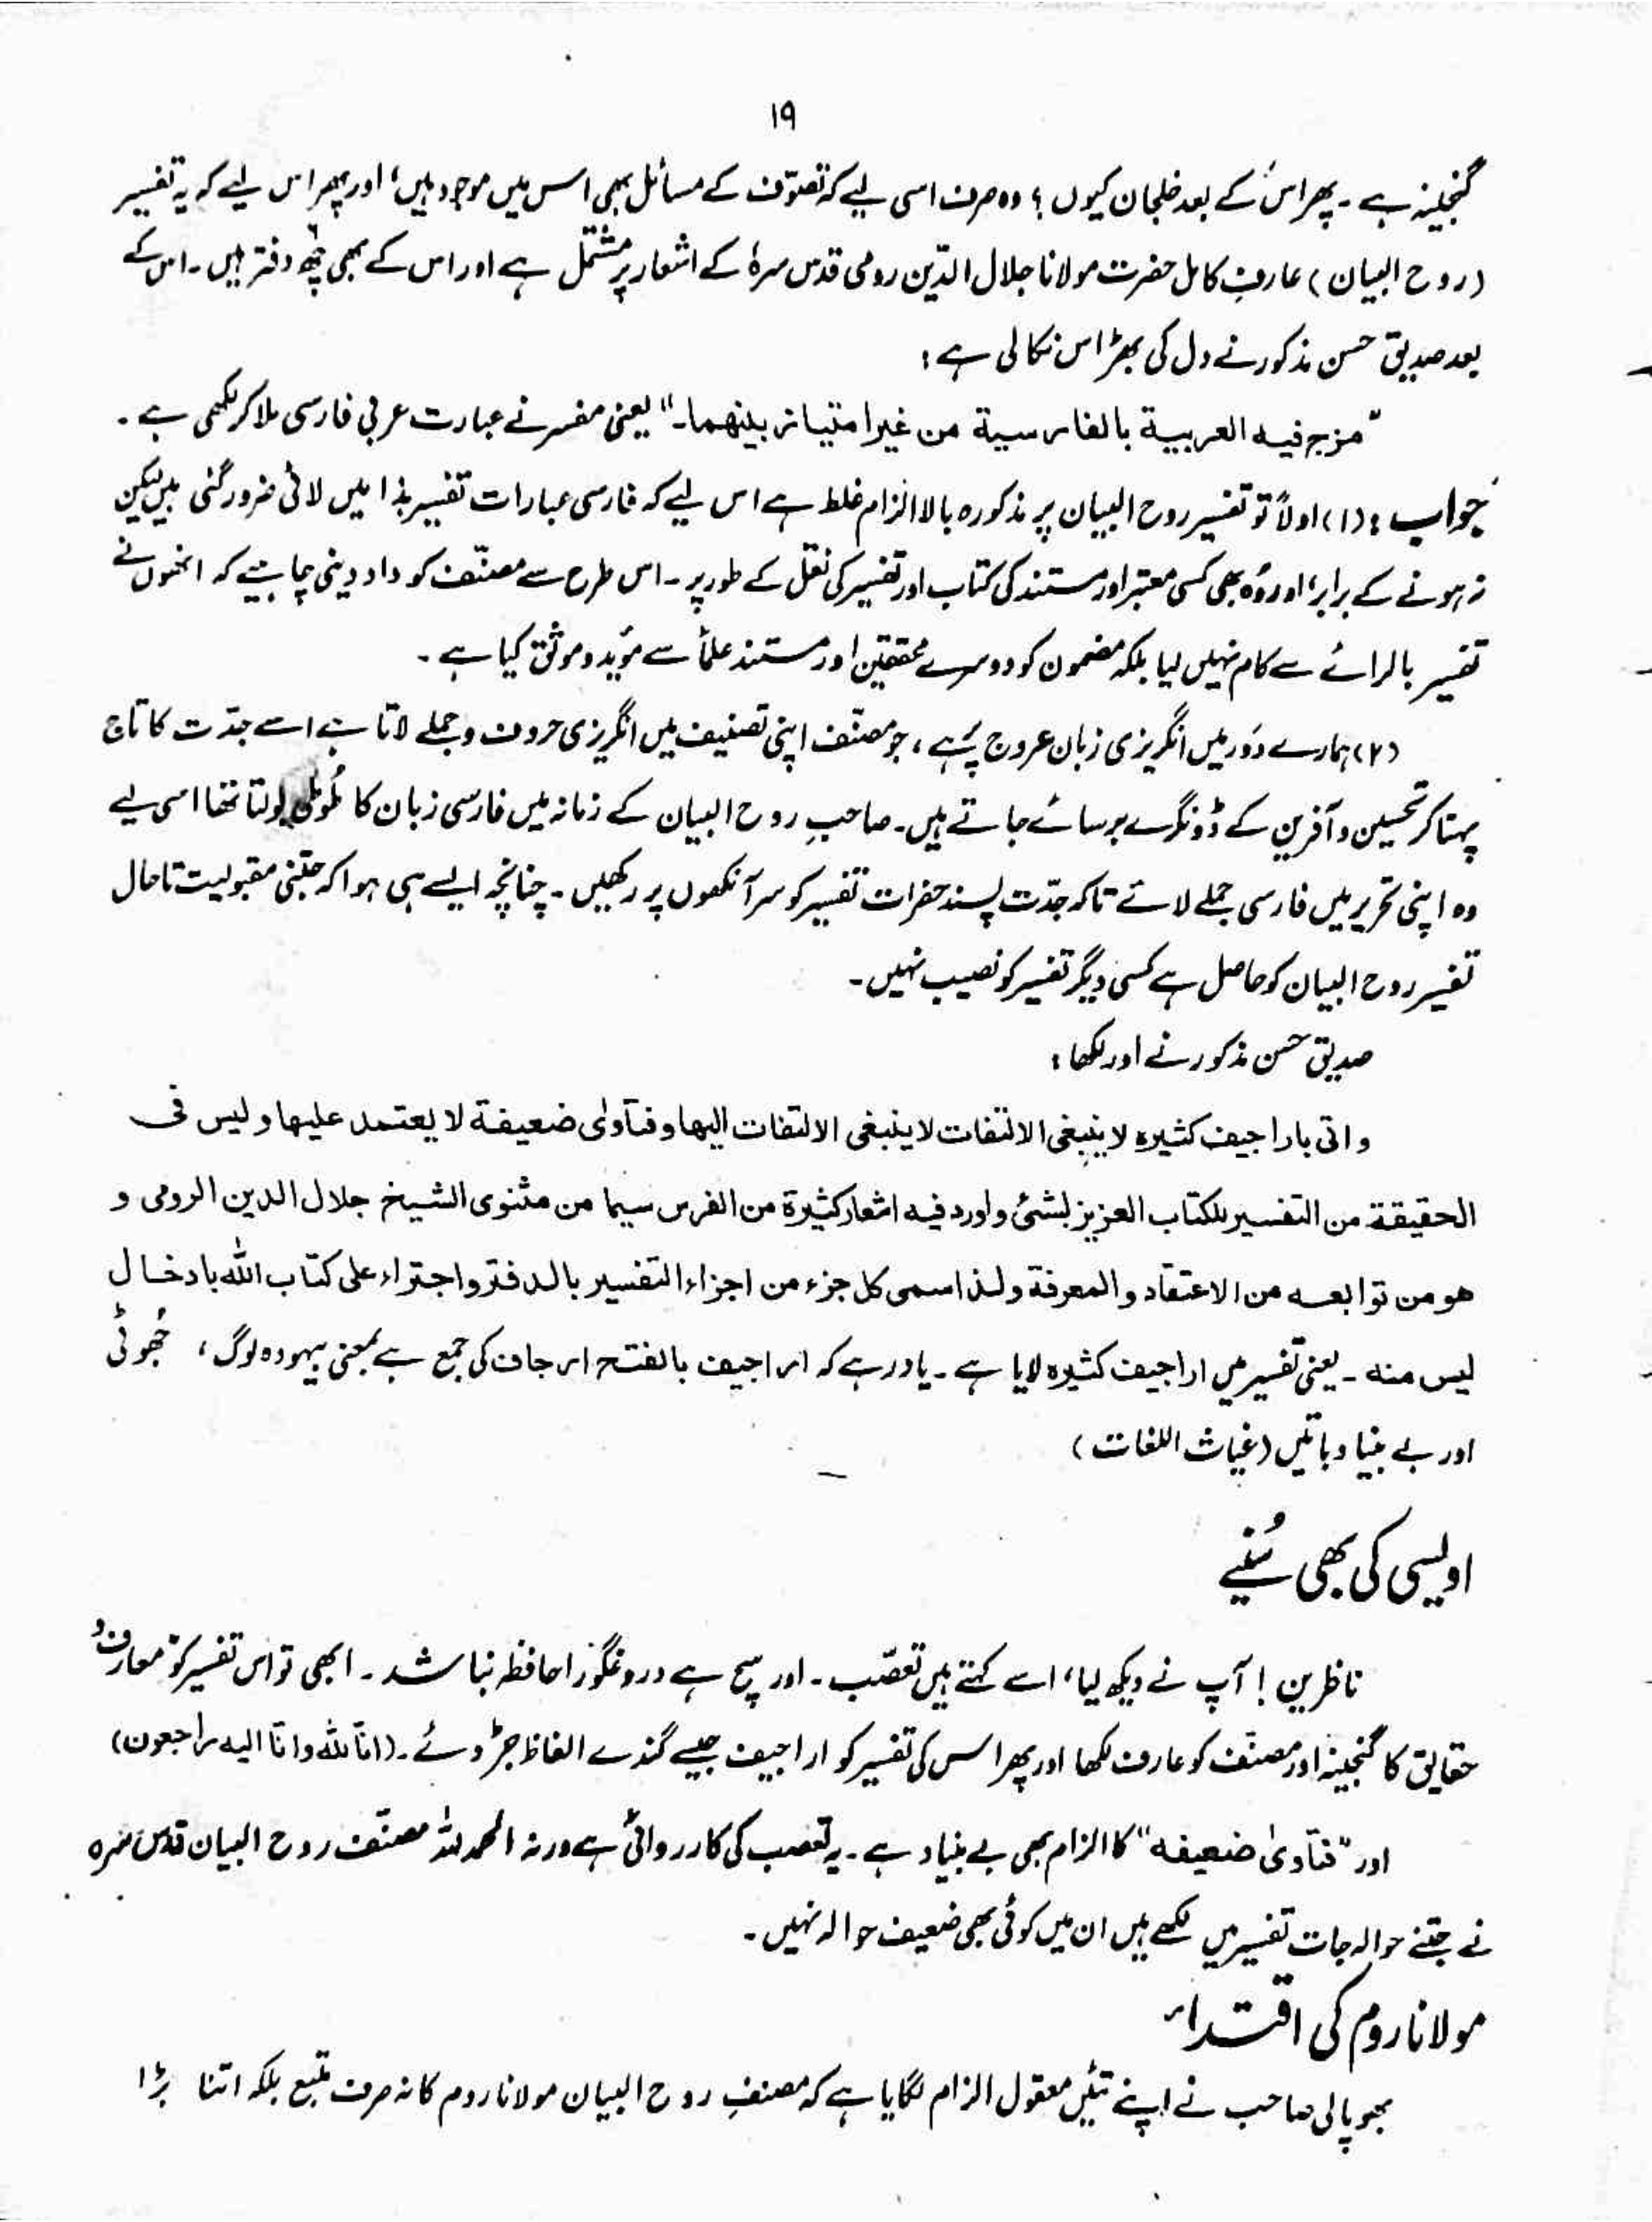 ۱۹
گنجینہ ہے ۔ پھر اس کے بعد خلجان کیوں ؟ وہ صرف اسی لیے کہ تصوّف کے مسائل بھی اس میں موجود ہیں ، اور پھر اس لیے کہ یہ تفسیر
(روح البیان) عارفِ کامل حضرت مولانا جلال الدّین رومی قدس سرہٗ کے اشعار پر مشتمل ہے اور اس کے بھی چھ دفتر ہیں ۔ اس کے
بعد صدیق حسن مذکور نے دل کی بھڑاس نکالی ہے :
"مزج فیہ العربیۃ بالفارسیۃ من غیر امتیاز بینھما۔" یعنی مفسر نے عبارت عربی فارسی ملا کر لکھی ہے ۔
جواب : (۱) اولاً تو تفسیر روح البیان پر مذکورہ بالا الزام غلط ہے اس لیے کہ فارسی عبارات تفسیر ہذا میں لائی ضرور گئی ہیں لیکن
نہ ہونے کے برابر ، اور وُہ بھی کسی معتبر اور مستند کی کتاب اور تفسیر کی نقل کے طور پر ۔ اس طرح سے مصنّف کو داد دینی چاہیے کہ انھوں نے
تفسیر بالرائے سے کام نہیں لیا بلکہ مضمون کو دوسرے محققین اور مستند علمأ سے مؤید و موثق کیا ہے ۔
(۲) ہمارے دَور میں انگریزی زبان عروج پر ہے ، جو مصنّف اپنی تصنیف میں انگریزی حروف و جملے لاتا ہے اسے جدّت کا تاج
پہنا کر تحسین و آفرین کے ڈونگرے برسائے جاتے ہیں ۔ صاحبِ روح البیان کے زمانہ میں فارسی زبان کا طُوطی بولتا تھا اسی لیے
وہ اپنی تحریر میں فارسی جملے لائے تاکہ جدّت پسند حضرات تفسیر کو سر آنکھوں پر رکھیں ۔ چنانچہ ایسے ہی ہوا کہ جتنی مقبولیت تاحال
تفسیر روح البیان کو حاصل ہے کسی دیگر تفسیر کو نصیب نہیں ۔
صدیق حسن مذکور نے اور لکھا :
و اتی باراجیف کثیرہ لا ینبغی الالتفات لا ینبغی الالتفات الیھا و فتاوٰی ضعیفۃ لا یعتمد علیھا و لیس فی
الحقیقۃ من التفسیر للکتاب العزیز بشئی و اورد فیہ اشعار کثیرۃ من الفرس سیما من مثنوی الشیخ جلال الدین الرومی و
ھو من توابعہ من الاعتقاد و المعرفۃ و لذا سمی کل جزء من اجزاء التفسیر بالدفتر و اجتراء علی کتاب اللہ بادخال
لیس منہ ۔ یعنی تفسیر میں اراجیف کثیرہ لایا ہے ۔ یاد رہے کہ اراجیف بالفتح ارجاف کی جمع ہے بمعنی بیہودہ لوگ ، جُھوٹی
اور بے بنیاد باتیں (غیاث اللغات)
اویسی کی بھی سُنیے
ناظرین ! آپ نے دیکھ لیا ، اسے کہتے ہیں تعصّب ۔ اور سچ ہے دروغگو را حافظہ نباشد ۔ ابھی تو اس تفسیر کو معارف و
حقایق کا گنجینہ اور مصنّف کو عارف لکھا اور پھر اس کی تفسیر کو اراجیف جیسے گندے الفاظ جڑ دئے ۔ (انّا للہ و انّا الیہ راجعون)
اور "فتاوٰی ضعیفہ" کا الزام بھی بے بنیاد ہے ۔ یہ تعصب کی کارروائی ہے ورنہ الحمد للہ مصنّف روح البیان قدس سرہ
نے جتنے حوالہ جات تفسیر میں لکھے ہیں ان میں کوئی بھی ضعیف حوالہ نہیں ۔
مولانا روم کی اقتداء
بھوپالی صاحب نے اپنے تئیں معقول الزام لگایا ہے کہ مصنفِ روح البیان مولانا روم کا نہ صرف متبع بلکہ اتنا بڑا